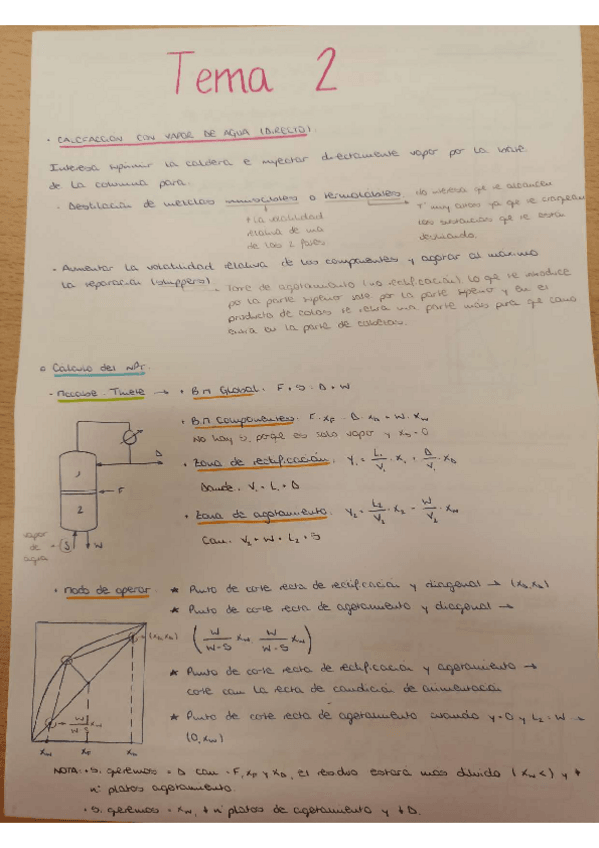 Tema 2
• CALEFACCION CON VAPOR DE AGUA (DIRECTO).
Interesa suprimir la caldera e inyectar directamente vapor por la base
de la columna para:
• Destilación de mezclas inmiscibles o termolábiles
↑ la volatilidad
relativa de una
de las 2 fases
No interesa que se alcancen
Tª muy altas ya que se
las sustancias que se están
destilando.
• Aumentar la volatilidad relativa de los componentes y agotar al máximo
la separación (strippers)
- Torre de agotamiento (no rectificación), lo que se introduce
por la parte superior sale por la parte superior y en el
producto de colas se
entra en la parte de
o Cálculo del NPT:
- McCabe-Thiele → • B.M Global: F + S = D + W
• B.M Componentes: F · xF = D · xD + W · xW
No hay S, porque es solo vapor y xS = 0
• Zona de rectificación: Y1 = L1/V1 · x1 + D/V1 · xD
Donde: V1 = L1 + D
• Zona de agotamiento: Y2 = L2/V2 · x2 - W/V2 · xW
Con: V2 + W = L2 + S
1
2
D
F
vapor
de
agua
S
W
• Modo de operar:
★ Punto de corte recta de rectificación y diagonal → (xD, xD)
★ Punto de corte recta de agotamiento y diagonal →
(W/W-S xW, W/W-S xW)
★ Punto de corte recta de rectificación y agotamiento →
corte con la recta de condición de alimentación
★ Punto de corte recta de agotamiento cuando y=0 y L2=W →
(0, xW)
(xD, xD)
W/W-S xW
xW xF xD
NOTA: • Si queremos = D con = F, xF y xD, el residuo estará más diluido (xW <) y +
nº platos agotamiento.
• Si queremos = xW, ↓ nº platos de agotamiento y ↓ D.